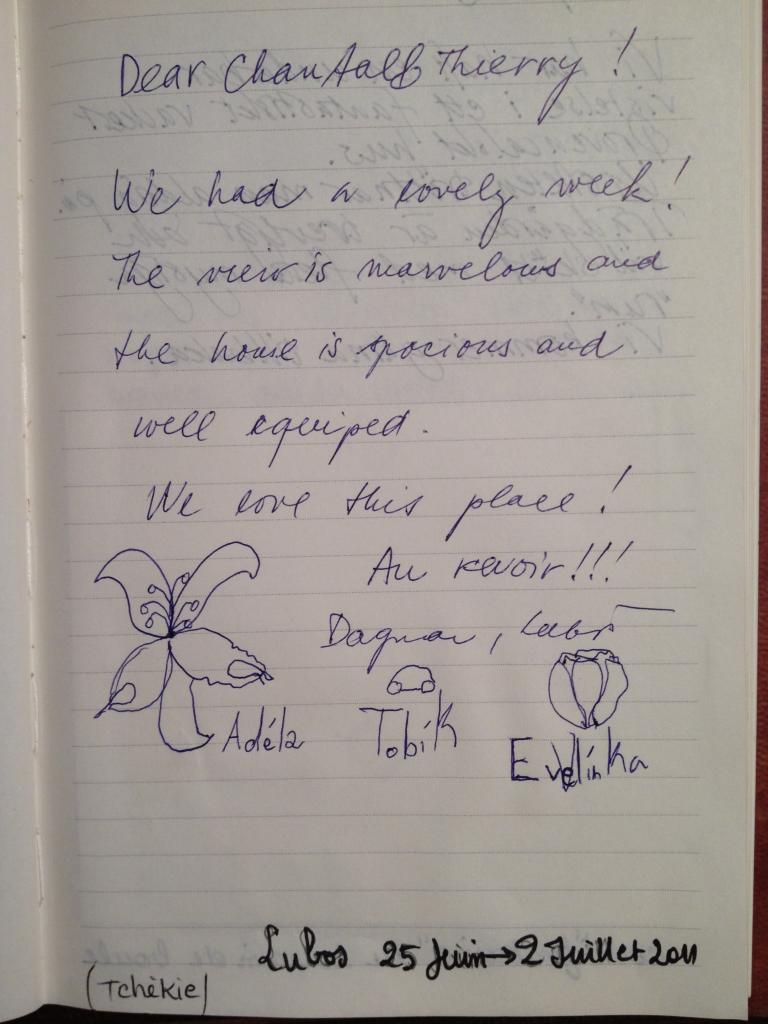 Dear Chantal & Thierry !
We had a lovely week!
The view is marvelous and
the house is spacious and
well equiped.
We love this place !
Au revoir!!!
Dagmar, Luboš
Adéla
Tobík
Evelínka
Lubos 25 Juin → 2 Juillet 2011
(Tchékie)